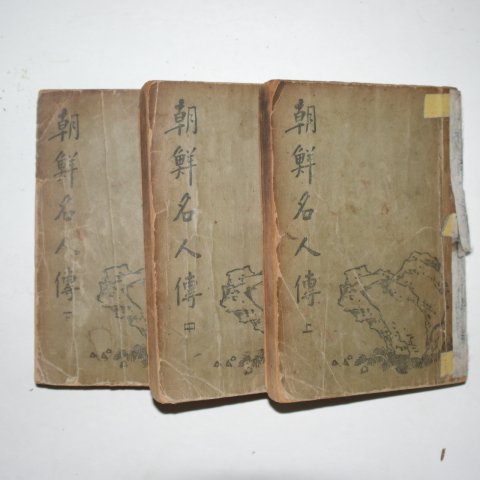 朝鮮名人傳 上
朝鮮名人傳 中
朝鮮名人傳 下